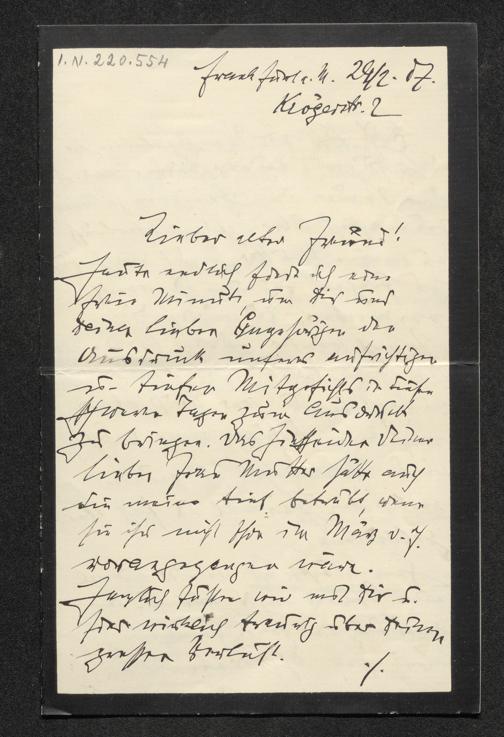 I.N. 220.554
Frankfurt a. M. 24/2. 07.
Klögerstr. 2
Lieber alter Freund!
Heute endlich finde ich eine
freie Minute, um Dir und
Deinen lieben Angehörigen den
Ausdruck unseres aufrichtigen
u. tiefen Mitgefühls in diesen
schweren Tagen zum Ausdruck
zu bringen. Das Hinscheiden Deiner
lieben Frau Mutter hätte auch
die meine tief betrübt, wenn
sie ihr nicht schon im März v. J.
vorangegangen wäre.
Herzlich fühlen wir mit Dir u.
sind wirklich traurig über Deinen
grossen Verlust.
./.